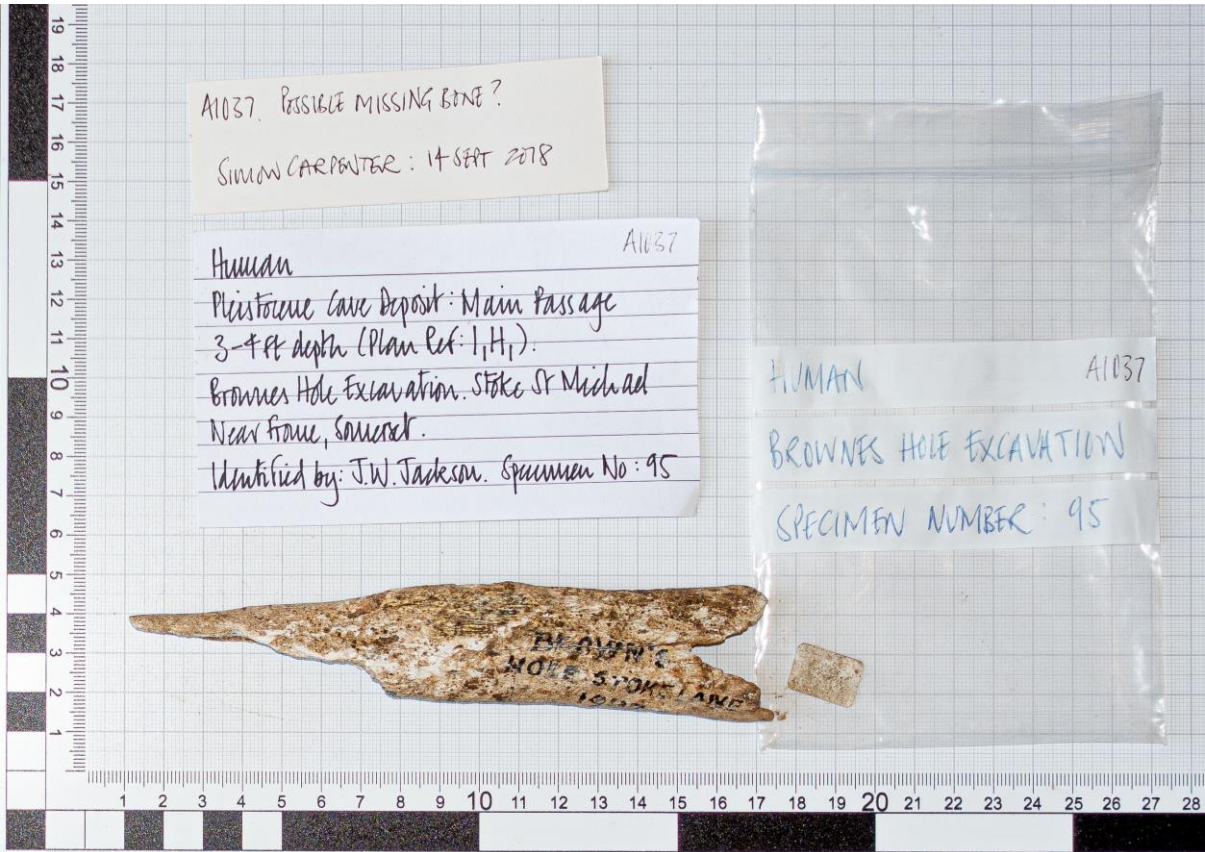 A1037. POSSIBLE MISSING BONE?
SIMON CARPENTER: 14 SEPT 2018
A1037
Human
Pleistocene Cave Deposit: Main Passage
3-4 ft depth (Plan Ref: I,H,).
Brownes Hole Excavation. Stoke St Michael
Near Frome, Somerset.
Identified by: J.W. Jackson. Specimen No: 95
HUMAN A1037
BROWNES HOLE EXCAVATION
SPECIMEN NUMBER: 95
BROWN'S
HOLE STOKE LANE
19
18
17
16
15
14
13
12
11
10
9
8
7
6
5
4
3
2
1
1 2 3 4 5 6 7 8 9 10 11 12 13 14 15 16 17 18 19 20 21 22 23 24 25 26 27 28